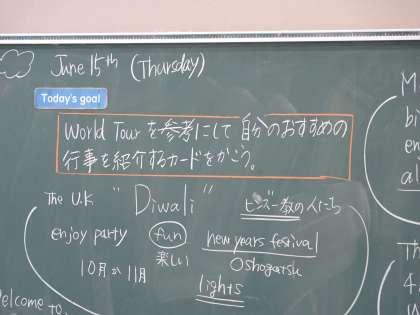 June 15th (Thursday)
Today's goal
World Tour を参考にして 自分のおすすめの
行事を紹介するカードをかこう。
The U.K "Diwali" ヒンズー教の人たち
enjoy party fun new years festival
楽しい Oshogatsu
10月か11月
lights
Welcome to